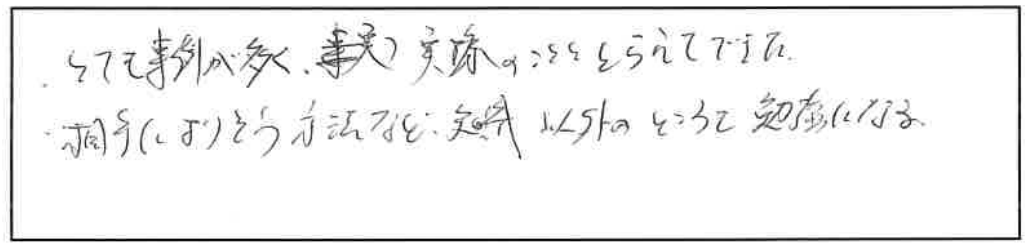 ・とても事例が多く、実際のこととらえてできた.
・相手によりそう方法など、知識以外のところで勉強になる.